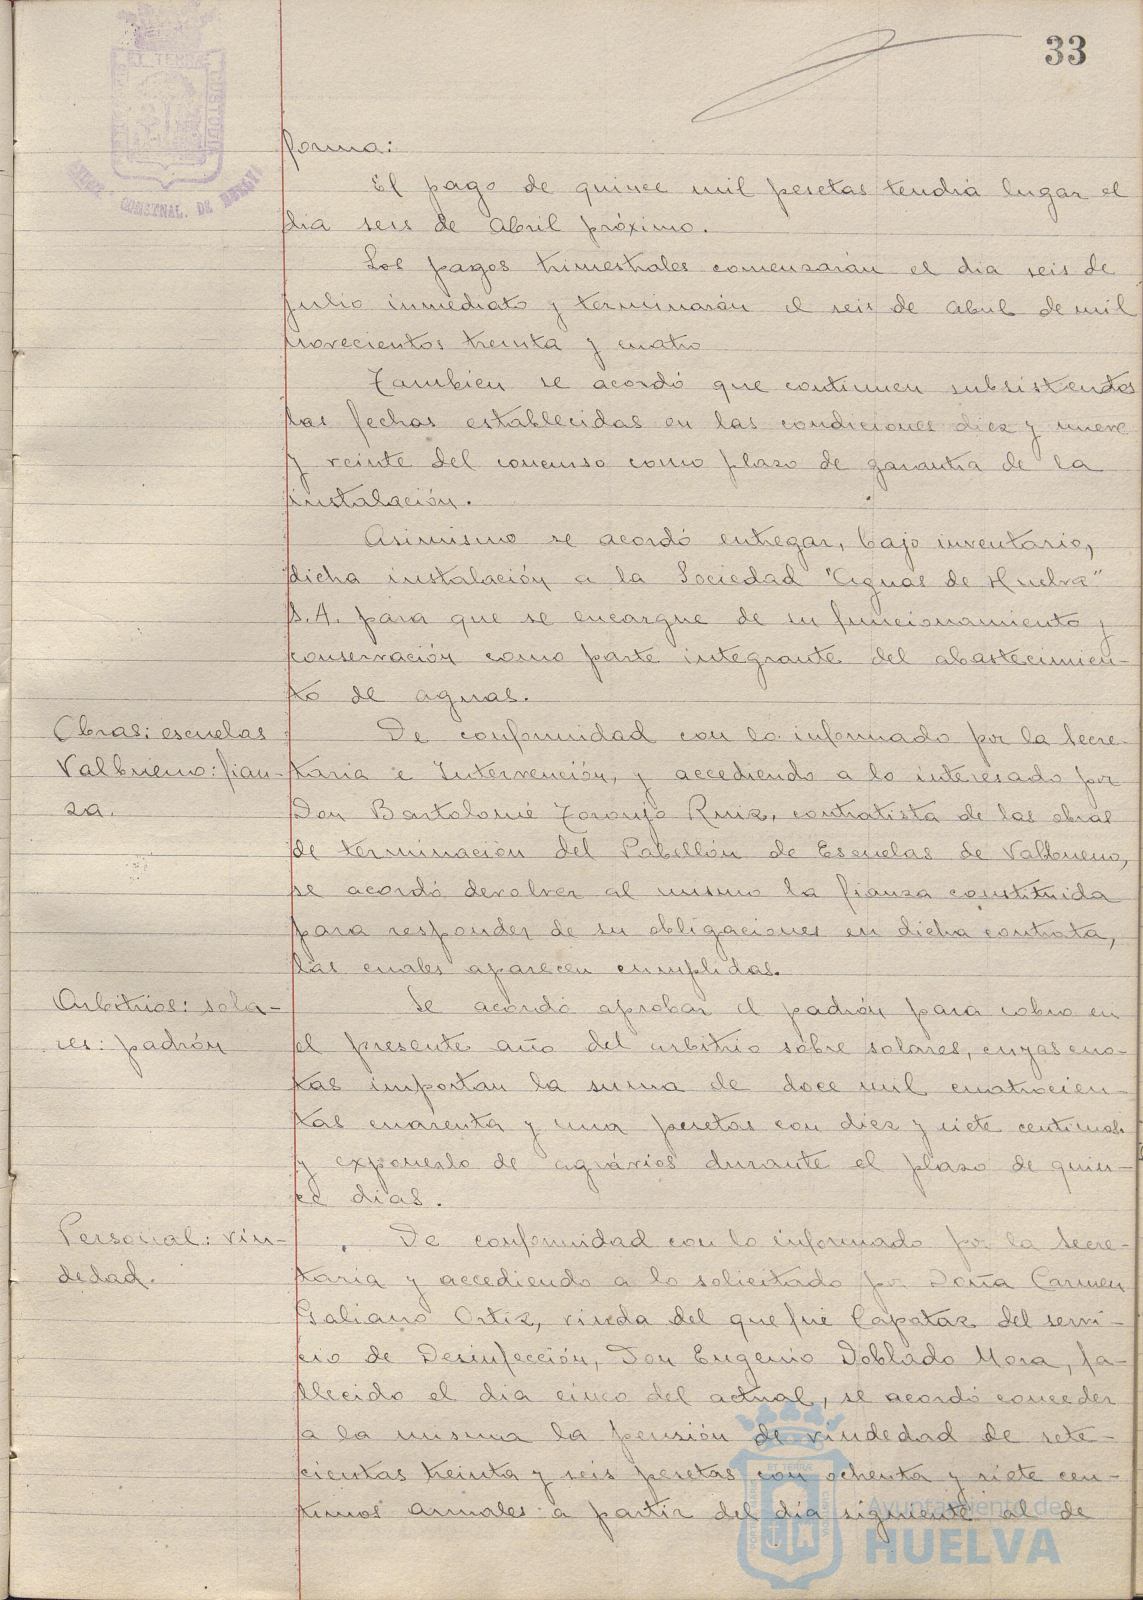 33
ET TERRÆ
EXCMO. AYTO. CONSTNAL. DE HUELVA
forma:
El pago de quince mil pesetas tendrá lugar el
dia seis de Abril próximo.
Los pagos trimestrales comenzarán el dia seis de
julio inmediato y terminarán el seis de Abril de mil
novecientos treinta y cuatro
Tambien se acordó que continuen subsistendos
las fechas establecidas en las condiciones diez y nueve
y veinte del concurso como plazo de garantia de la
instalación.
Asimismo se acordó entregar, bajo inventario,
dicha instalación a la Sociedad "Aguas de Huelva"
S.A. para que se encargue de su funcionamiento y
conservación como parte integrante del abastecimien-
to de aguas.
Obras: escuelas
Valbueno: fian-
za.
De conformidad con lo informado por la Secre-
taria e Intervención, y accediendo a lo interesado por
Don Bartolomé Toronjo Ruiz, contratista de las obras
de terminación del Pabellón de Escuelas de Valbueno,
se acordó devolver al mismo la fianza constituida
para responder de su obligaciones en dicha contrata,
las cuales aparecen cumplidas.
Arbitrios: sola-
res: padrón
Se acordó aprobar el padrón para cobro en
el presente año del arbitrio sobre solares, cuyas cuo-
tas importan la suma de doce mil cuatrocien-
tas cuarenta y una pesetas con diez y siete centimos
y exponerlo de agrávios durante el plazo de quin-
ce dias.
Personal: viu-
dedad.
De conformidad con lo informado por la Secre-
taria y accediendo a lo solicitado por Doña Carmen
Galiano Ortiz, viuda del que fué Capataz del servi-
cio de Desinfección, Don Eugenio Doblado Mora, fa-
llecido el dia cinco del actual, se acordó conceder
a la misma la pensión de viudedad de sete-
cientas treinta y seis pesetas con ochenta y siete cen-
timos anuales a partir del dia siguiente al de
Ayuntamiento de
HUELVA